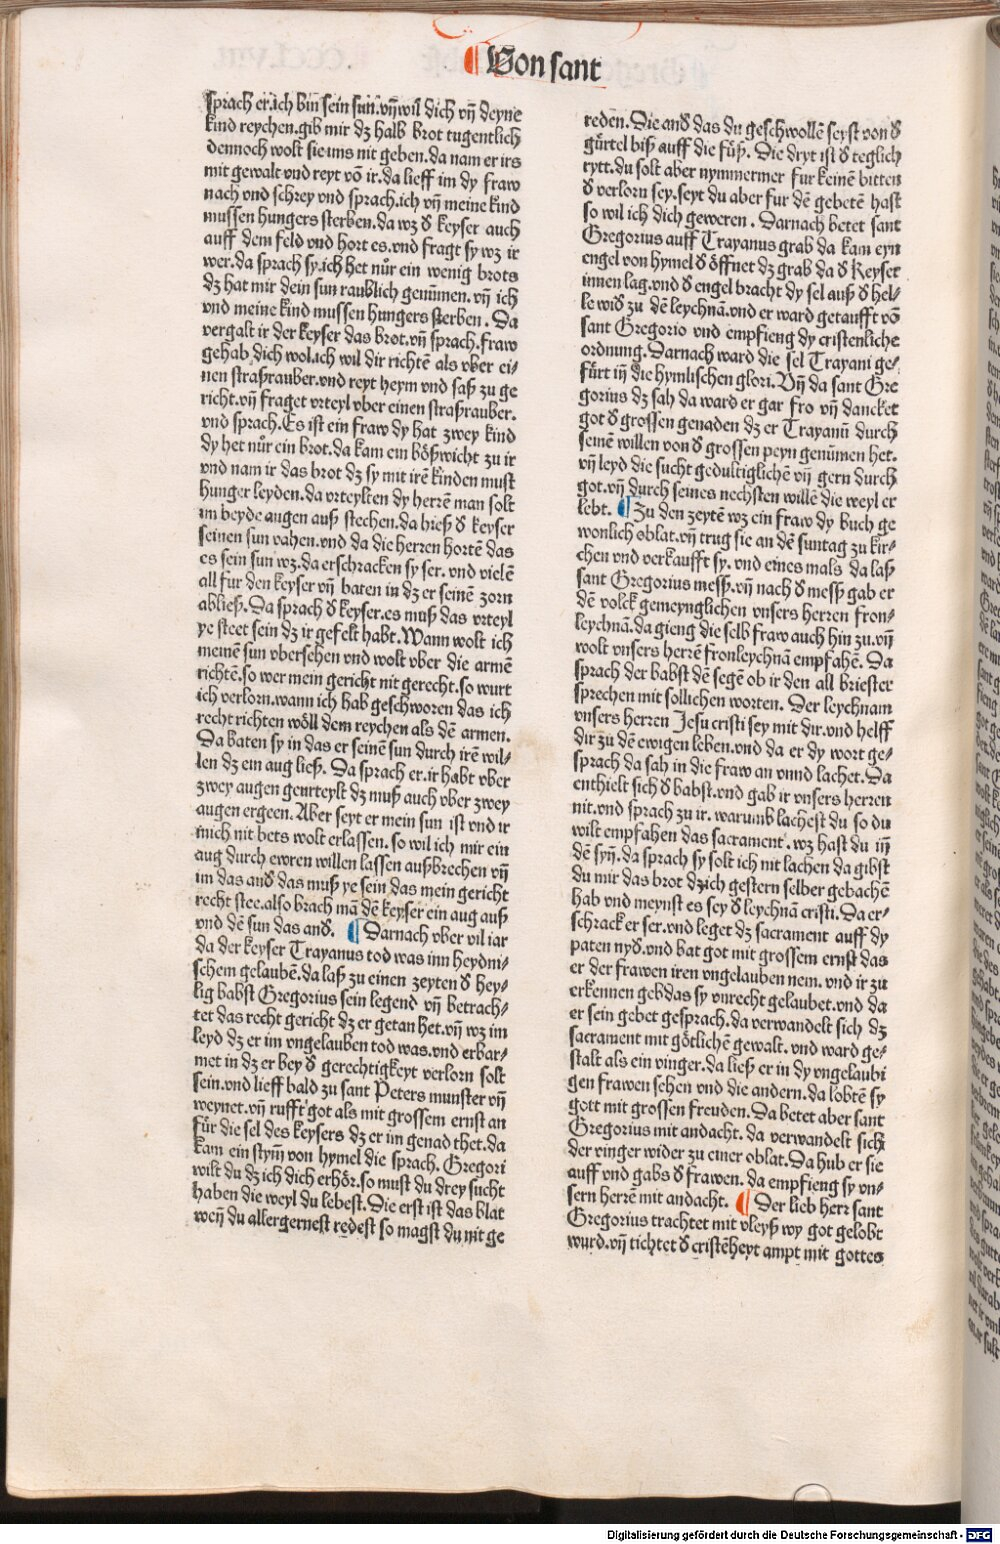 ¶ Von sant
sprach er.ich bin sein sun.vñ wil dich vñ deyne
kind reychen.gib mir dz halb brot tugentlich
dennoch wolt sie uns nit geben.da nam er irs
mit gewalt vnd reyt võ ir.da lieff im dy fraw
nach vnd schrey vnd sprach.ich vñ meine kind
mussen hungers sterben.da wz đ keyser auch
auff dem feld vnd hort es.vnd fragt sy wz ir
wer.da sprach sy.ich het nůr ein wenig brots
dz hat mir dein sun raublich genũmen.vñ ich
vnd meine kind mussen hungers sterben. Da
vergalt ir der keyser das brot.vñ sprach.fraw
gehab dich wol.ich wil dir richtẽ als vber ei⸗
nen straßrauber.vnd reyt heym vnd saß zu ge
richt.vñ fraget vrteyl vber einen straßrauber.
vnd sprach.Es ist ein fraw dy hat zwey kind
dy het nůr ein brot.da kam ein bößwicht zu ir
vnd nam ir das brot dz sy mit irẽ kinden must
hunger leyden.da vrteylten dy herrẽ man solt
im beyde augen auß stechen.da hieß đ keyser
seinen sun vahen.vnd da die herren hortẽ das
es sein sun wz.da erschracken sy ser. vnd vielẽ
all fur den keyser vñ baten in dz er seinẽ zorn
abließ. Da sprach đ keyser.es muß das vrteyl
ye steet sein dz ir gefelt habt. Wann wolt ich
meinẽ sun vbersehen vnd wolt vber die armẽ
richtẽ.so wer mein gericht nit gerecht.so wurt
ich verlorn.wann ich hab geschworen das ich
recht richten wöll dem reychen als dẽ armen.
Da baten sy in das er seinẽ sun durch irẽ wil⸗
len dz ein aug ließ. Da sprach er.ir habt vber
zwey augen geurteylt dz muß auch vber zwey
augen ergeen. Aber seyt er mein sun ist vnd ir
mich nit bets wolt erlassen. so wil ich mir ein
aug durch ewren willen lassen außbrechen vñ
im das anđ das muß ye sein das mein gericht
recht stee.also brach mã dẽ keyser ein aug auß
vnd dẽ sun das anđ. ¶ Darnach vber vil iar
da der keyser Trayanus tod was inn heydni⸗
schem gelaubẽ.da laß zu einen zeyten đ hey⸗
lig babst Gregorius sein legend vñ betrach⸗
tet das recht gericht dz er getan het.vñ wz im
leyd dz er im vngelauben tod was.vnd erbar⸗
met in dz er bey đ gerechtigkeyt verlorn solt
sein.vnd lieff bald zu sant Peters munster vñ
weynet.vñ rufft got als mit grossem ernst an
für die sel des keysers dz er im genad thet.da
kam ein stym̃ von hymel die sprach. Gregori
wilt du dz ich dich erhör.so must du drey sucht
haben die weyl du lebest. Die erst ist das blat
weñ du allergernest redest so magst du nit ge
reden. Die anđ das du geschwollẽ seyst von đ
gürtel biß auff die füß. Die dryt ist đ teglich
rytt.du solt aber nymmermer fur keinẽ bitten
đ verlorn sey.seyt du aber fur dẽ gebetẽ hast
so wil ich dich geweren. Darnach betet sant
Gregorius auff Trayanus grab da kam eyn
engel von hymel đ öffnet dz grab da đ Keyser
innen lag.vnd đ engel bracht dy sel auß đ hel⸗
le wiđ zu dẽ leychnã.vnd er ward getaufft võ
sant Gregorio vnd empfieng dy cristenliche
ordnung.Darnach ward die sel Trayani ge⸗
fürt in̄ die hymlischen glori. Vñ da sant Gre
gorius dz sah da ward er gar fro vñ dancket
got đ grossen genaden dz er Trayanũ durch
seinẽ willen von đ grossen peyn genũmen het.
vñ leyd die sucht gedultiglichẽ vñ gern durch
got.vñ durch seines nechsten willẽ die weyl er
lebt. ¶ Zu den zeytẽ wz ein fraw dy buch ge
wonlich oblat.vñ trug sie an dẽ suntag zu kir⸗
chen vnd verkaufft sy. vnd eines mals da laß
sant Gregorius mess.vñ nach đ mess gab er
dẽ volck gemeynglichen vnsers herren fron⸗
leychnã.da gieng die selb fraw auch hin zu.vñ
wolt vnsers herrẽ fronleychnã empfahẽ. Da
sprach der babst dẽ segẽ ob ir den all briester
sprechen mit sollichen worten. Der leychnam
vnsers herren Jesu cristi sey mit dir.vnd helff
dir zu dẽ ewigen leben.vnd da er dy wort ge⸗
sprach da sah in die fraw an vnnd lachet. Da
enthielt sich đ babst.vnd gab ir vnsers herren
nit.vnd sprach zu ir. warumb lachest du so du
wilt empfahen das sacrament. wz hast du in̄
dẽ syñ.da sprach sy solt ich nit lachen da gibst
du mir das brot dz ich gestern selber gebachẽ
hab vnd meynst es sey đ leychnã cristi. Da er⸗
schrack er ser.vnd leget dz sacrament auff dy
paten nyđ.vnd bat got mit grossem ernst das
er der frawen iren vngelauben nem. vnd ir zu
erkennen geb das sy vnrecht gelaubet.vnd da
er sein gebet gesprach.da verwandelt sich dz
sacrament mit götlichẽ gewalt. vnd ward ge⸗
stalt als ein vinger.da ließ er in dy vngelaubi
gen frawen sehen vnd die andern.da lobtẽ sy
gott mit grossen freuden. Da betet aber sant
Gregorius mit andacht. da verwandelt sich
der vinger wider zu einer oblat. Da hub er sie
auff vnd gabs đ frawen. da empfieng sy vn⸗
sern herrẽ mit andacht. ¶ Der lieb herr sant
Gregorius trachtet mit vleyß wy got gelobt
wurd.vñ tichtet đ cristẽheyt ampt mit gottes
Digitalisierung gefördert durch die Deutsche Forschungsgemeinschaft - DFG